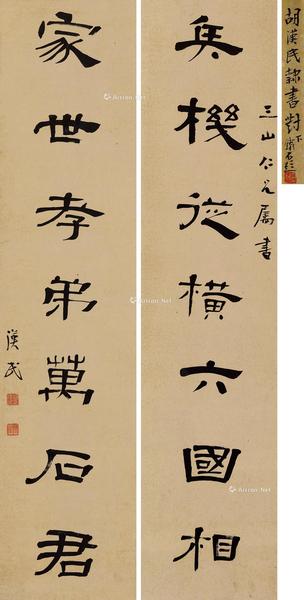 胡漢民隸書對
三山仁兄屬書
兵機從橫六國相
家世孝弟萬石君
漢民
Artron.Net